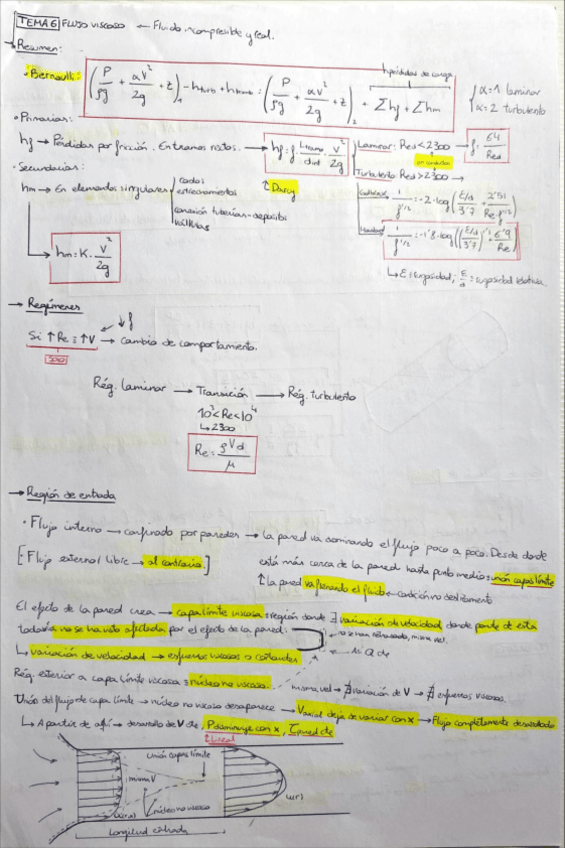 TEMA 6 FLUJO VISCOSO ← Fluido incompresible y real.
→ Resumen:
hpérdidas de carga
• Bernoulli: (P/ρg + αV²/2g + z)₁ - hturb + hbomb = (P/ρg + αV²/2g + z)₂ + Σhf + Σhm
{ α=1 laminar
α=2 turbulento
• Primarias:
hf → Pérdidas por fricción. Entramos nodos. → hf = f · Ltramo/dint · V²/2g
↑ Darcy
Laminar: Red < 2300 → f = 64/Red
en conductos
Turbulento Red > 2300 →
1/f^1/2 = -2·log(ε/d/3'7 + 2'51/Re·f^1/2)
1/f^1/2 = -1'8·log((ε/d/3'7)^1'11 + 6'9/Re)
↳ ε = rugosidad; ε/d = rugosidad relativa.
• Secundarias:
hm → En elementos singulares { codos
estrechamientos
conexión tuberías-depósitos
válvulas
hm = K · V²/2g
→ Regímenes
↓f
Si ↑Re = ↑V → cambia de comportamiento.
Rég. laminar → Transición → Rég. turbulento
10³ < Re < 10⁴
↳ 2300
Re = ρVd/μ
→ Región de entrada
• Flujo interno → confinado por paredes → la pared va dominando el flujo poco a poco. Desde donde
está más cerca de la pared hasta punto medio = unión capas límite
[• Flujo external libre → al contrario.]
↑ la pared va frenando el fluido ← condición no deslizamiento
El efecto de la pared crea → capa límite viscosa = región donde ∃ variación de velocidad donde parte de esta
todavía no se ha visto afectada por el efecto de la pared:
no se han retrasado, misma vel.
↳ variación de velocidad → esfuerzos viscosos o cortantes
← Así Q cte
Rég. exterior a capa límite viscosa = núcleo no viscoso. misma vel → ∄ variación de V → ∄ esfuerzos viscosos.
Unión del flujo de capa límite → núcleo no viscoso desaparece → Vaxial deja de variar con x → Flujo completamente desarrollado
↳ A partir de ahí → desarrollo de V cte, P disminuye con x, τpared cte
↑ Lineal
unión capas límite
misma V
núcleo no viscoso
u(r,x)
u(r)
Longitud entrada